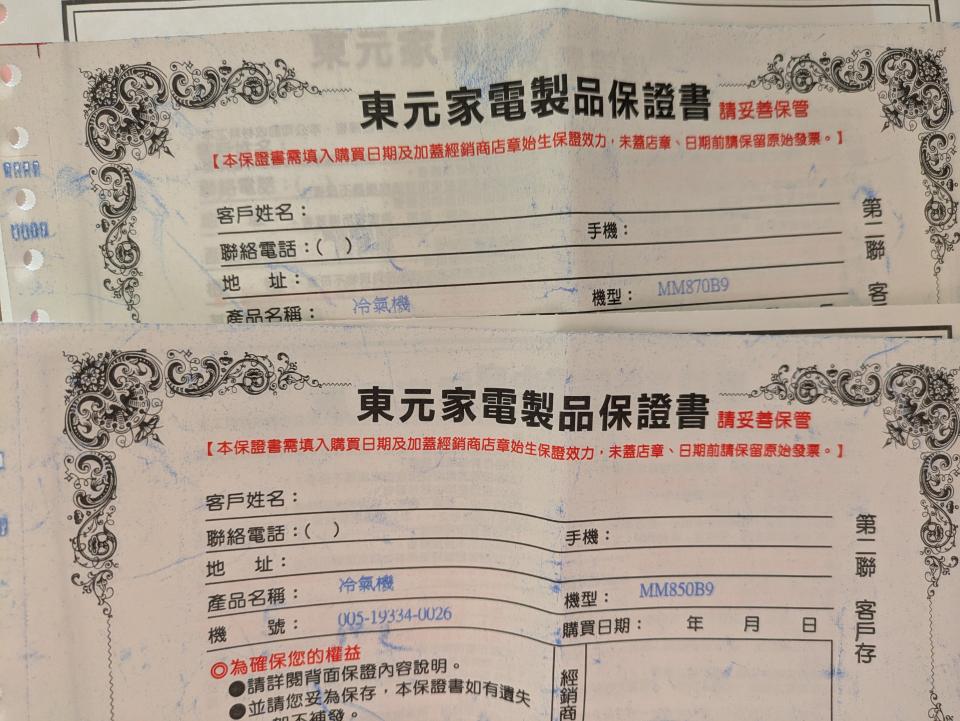 東元家電製品保證書 請妥善保管
【本保證書需填入購買日期及加蓋經銷商店章始生保證效力，未蓋店章、日期前請保留原始發票。】
客戶姓名：
聯絡電話：( ) 手機：
地 址：
產品名稱： 冷氣機 機型： MM870B9
第二聯 客
東元家電製品保證書 請妥善保管
【本保證書需填入購買日期及加蓋經銷商店章始生保證效力，未蓋店章、日期前請保留原始發票。】
客戶姓名：
聯絡電話：( ) 手機：
地 址：
產品名稱： 冷氣機 機型： MM850B9
機 號： 005-19334-0026 購買日期： 年 月 日
第二聯 客戶存
◎為確保您的權益
●請詳閱背面保證內容說明。
●並請您妥為保存，本保證書如有遺失
不補發。
經銷商